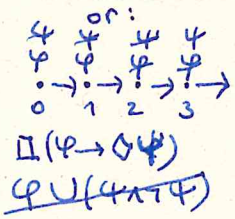 or:
ψ ψ ψ ψ
φ φ φ φ
• → • → • → • →
0 1 2 3
□(φ → ◇ψ)
φ U (φ ∧ ¬ψ)